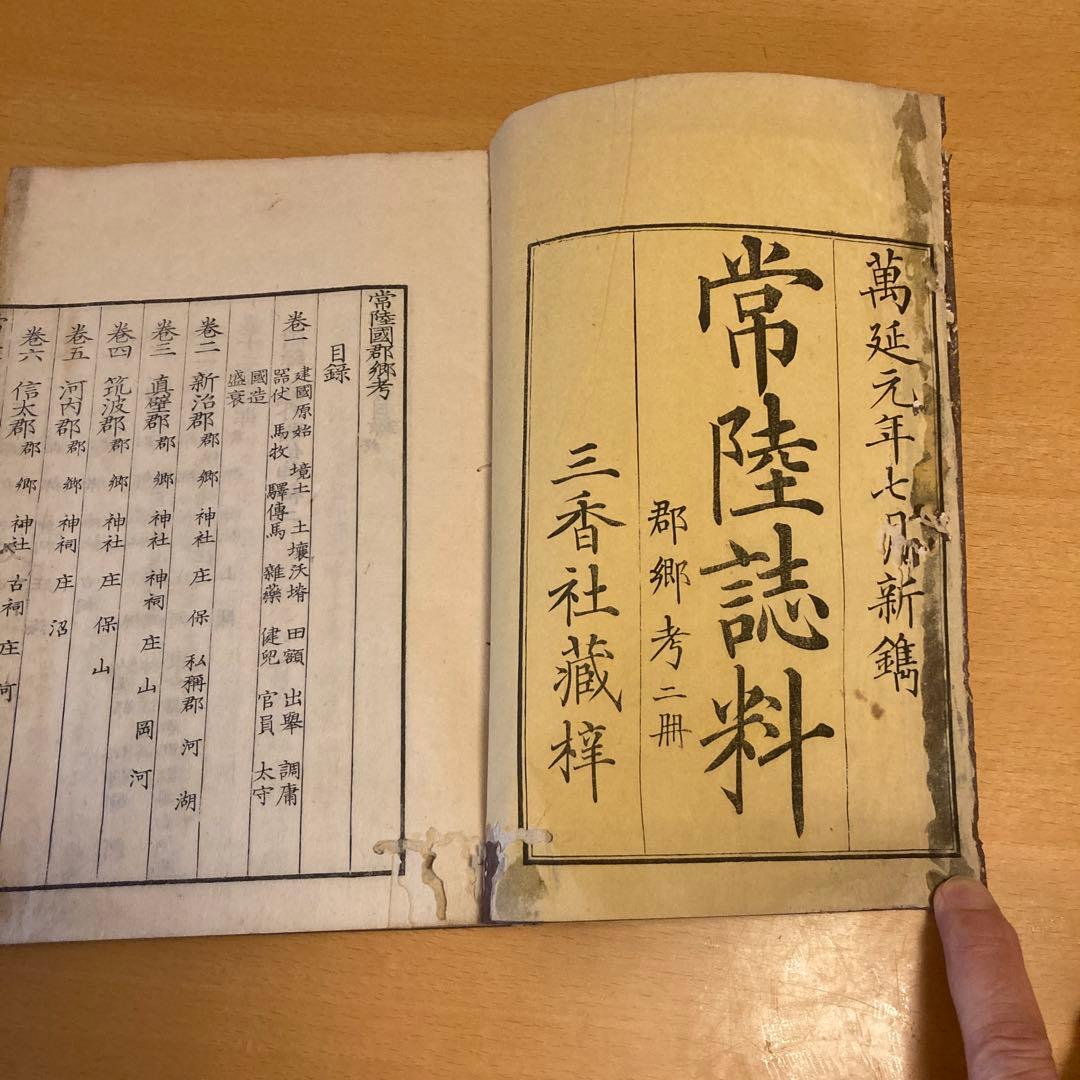 萬延元年七月新鐫
常陸誌料
郡郷考二冊
三香社藏梓
常陸國郡郷考
目録
卷一
建國原始 境土 土壤沃堉 田額 出擧 調庸
器仗 馬牧 驛傳馬 雜藥 健兒 官員 太守
國造
盛衰
卷二 新治郡 郡 郷 神社 庄 保 私稱郡 河 湖
卷三 真壁郡 郡 郷 神社 神祠 庄 山 岡 河
卷四 筑波郡 郡 郷 神社 庄 保 山
卷五 河内郡 郡 郷 神祠 庄 沼
卷六 信太郡 郡 郷 神社 古祠 庄 河